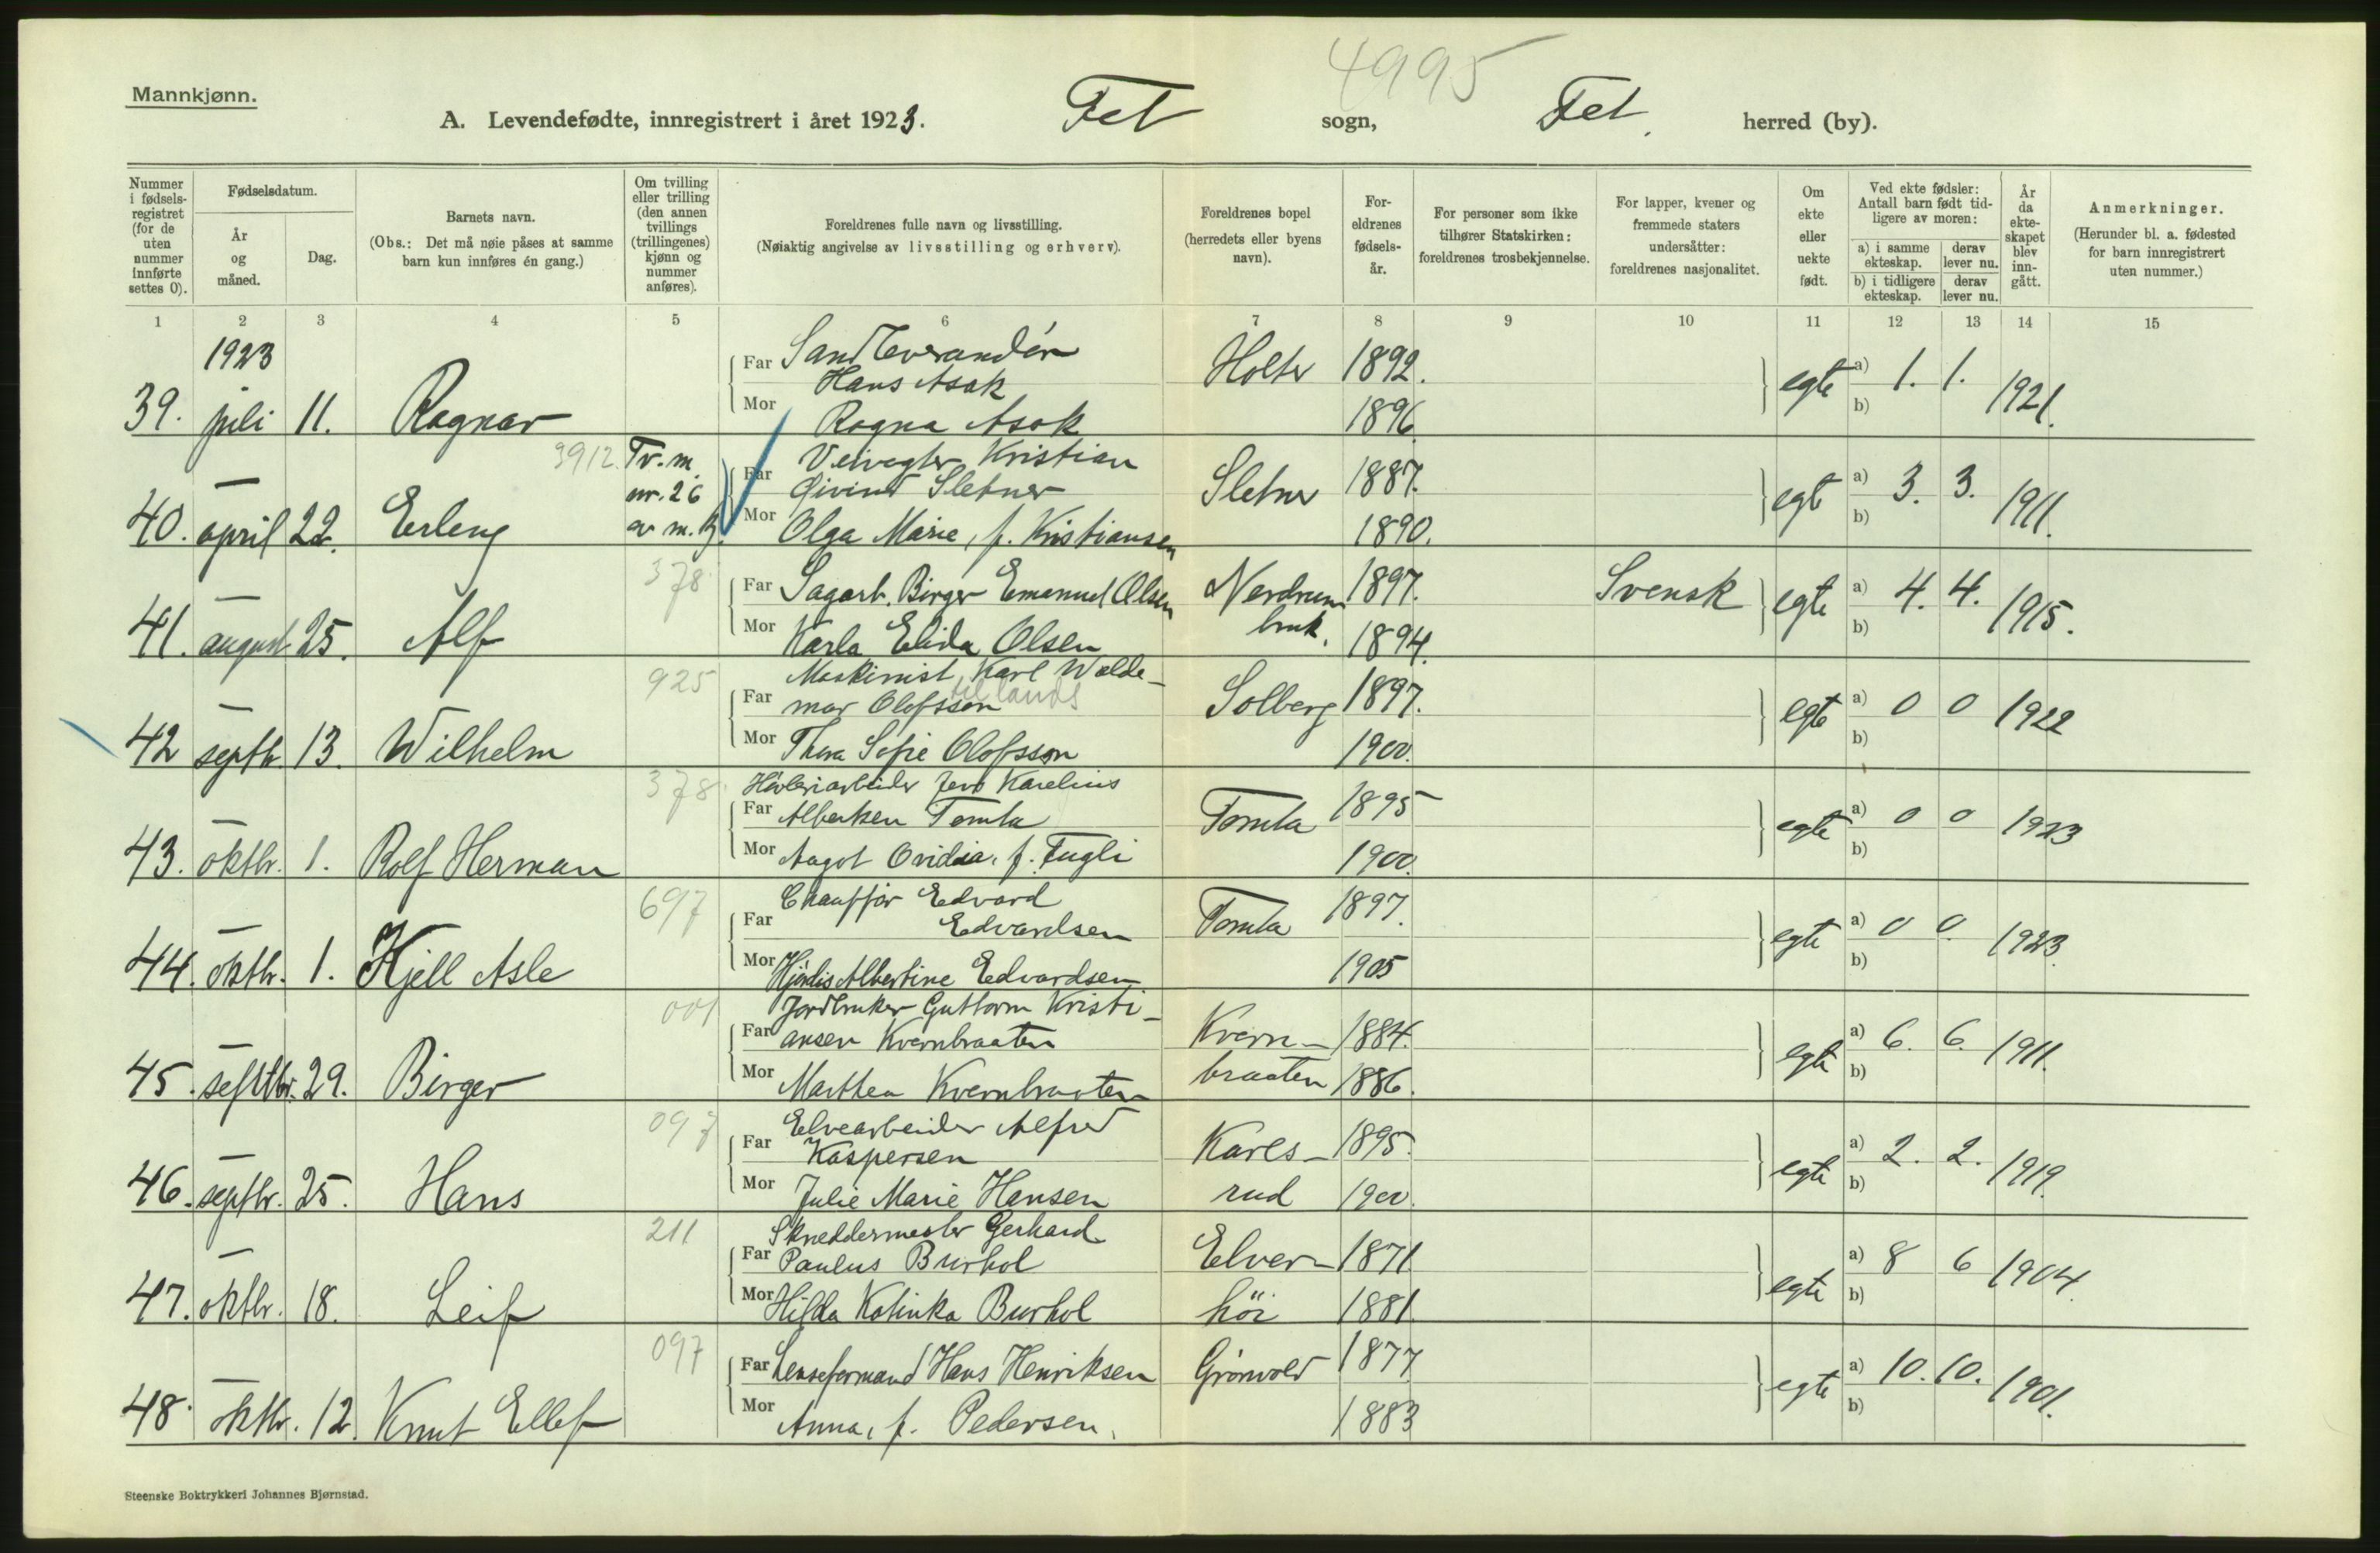 4995
Mannkjønn.
A. Levendefødte, innregistrert i året 1923. Fet sogn, Fet. herred (by).
Nummer i fødsels-registret (for de uten nummer innførte settes 0).
Fødselsdatum.
År og måned.
Dag.
Barnets navn.
(Obs.: Det må nøie påses at samme barn kun innføres én gang.)
Om tvilling eller trilling (den annen tvillings (trillingenes) kjønn og nummer anføres).
Foreldrenes fulle navn og livsstilling.
(Nøiaktig angivelse av livsstilling og erhverv).
Foreldrenes bopel (herredets eller byens navn).
For-eldrenes fødsels-år.
For personer som ikke tilhører Statskirken: foreldrenes trosbekjennelse.
For lapper, kvener og fremmede staters undersåtter: foreldrenes nasjonalitet.
Om ekte eller uekte født.
Ved ekte fødsler: Antall barn født tid-ligere av moren:
a) i samme ekteskap.
derav lever nu.
b) i tidligere ekteskap.
derav lever nu.
År da ekte-skapet blev inn-gått.
Anmerkninger.
(Herunder bl. a. fødested for barn innregistrert uten nummer.)
1 2 3 4 5 6 7 8 9 10 11 12 13 14 15
1923
Far Hans Asak Holter 1892. egte a) 1. 1. 1921.
39. juli 11. Ragnar Mor Ragna Asak 1896. b)
3912. Tv. m. nr. 26 av m.kj.
Far Kristian Øivind Sletner Sletner 1887. egte a) 3. 3. 1911.
40. — april 22. Erling Mor Olga Marie, f. Kristiansen 1890. b)
378
Far Sagarb. Birger Emanuel Olsen Nerdrum bruk. 1897. Svensk egte a) 4. 4. 1915.
41. — august 25. Alf Mor Karla Elida Olsen 1894. b)
925
Maskinist Karl Walde-
Far mar Olofsson til lands Solberg 1897. egte a) 0 0 1922
42 — septb. 13. Wilhelm Mor Thora Sofie Olofsson 1900. b)
378
Høvleriarbeider Jens Karelius
Far Albertsen Tomta Tomta 1895 egte a) 0 0 1923
43. oktbr. 1. Rolf Herman Mor Aagot Ovidia, f. Fugli 1900. b)
697
Chauffør Edvard
Far Edvardsen Tomta 1897. egte a) 0 0 1923.
44. — oktbr. 1. Kjell Asle Mor Hjørdis Albertine Edvardsen 1905 b)
001
Jordbruker Guttorm Kristi-
Far ansen Kvernbraaten Kvern-braaten 1884. egte a) 6. 6. 1911.
45. — septbr. 29. Birger Mor Marthea Kvernbraaten 1886. b)
097
Elvearbeider Alfred
Far Kaspersen Karls-rud 1895. egte a) 2. 2. 1919.
46. septbr. 25. Hans Mor Julie Marie Hansen 1900. b)
211
Skreddermester Gerhard
Far Paulus Burhol Elver-höi 1871 egte a) 8 6 1904.
47. — oktbr. 18. Leif Mor Hilda Katinka Burhol 1881. b)
097
Far Lenseformand Hans Henriksen Grønvold 1877 egte a) 10. 10. 1901.
48. — oktbr. 12. Knut Ellef Mor Anna, f. Pedersen. 1883 b)
Steenske Boktrykkeri Johannes Bjørnstad.